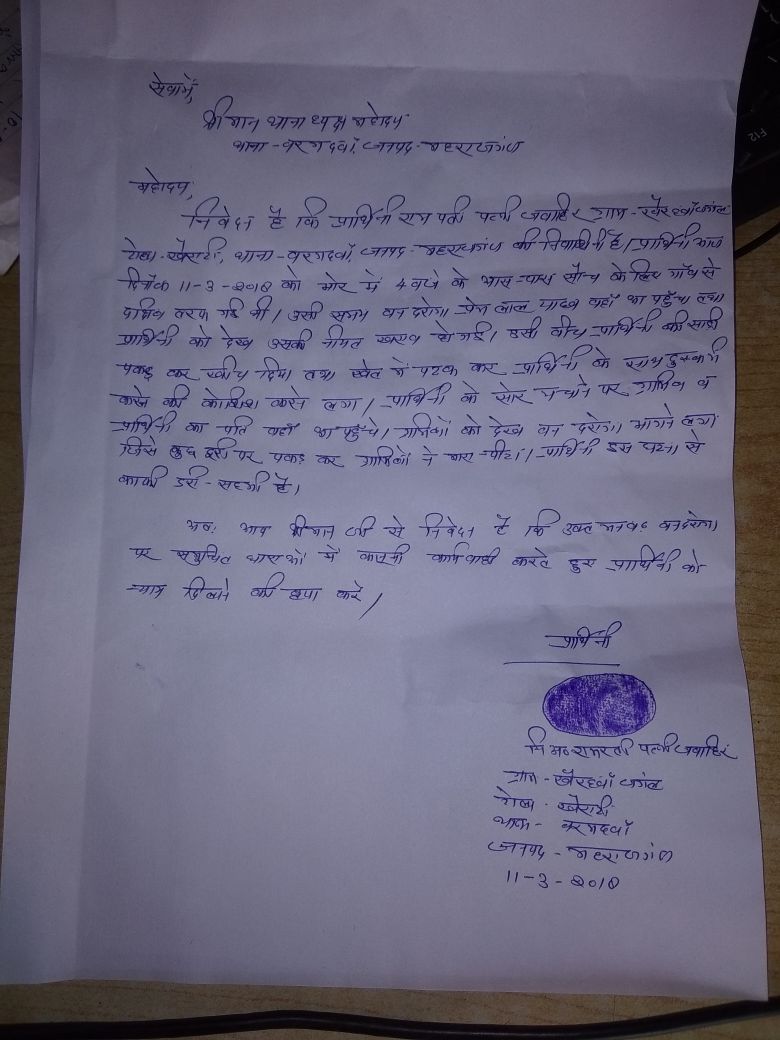 सेवामें,
श्रीमान थानाध्यक्ष महोदय
थाना - बरगदवाँ, जनपद - महराजगंज
महोदय,
निवेदन है कि प्रार्थिनी राम पती पत्नी जवाहिर ग्राम - खैरहवाँ जंगल
टोला - खैराटी, थाना - बरगदवाँ, जनपद - महराजगंज की निवासिनी है। प्रार्थिनी आज
दिनाँक 11-3-2018 को भोर में 4 बजे के आस-पास सौच के लिए गाँव से
दक्षिण तरफ गई थी। उसी समय वन दरोगा प्रेम लाल यादव वहाँ आ पहुँचा तथा
प्रार्थिनी को देख उसकी नीयत खराब हो गई। इसी बीच प्रार्थिनी की साड़ी
पकड़ कर खींच दिया तथा खेत में पटक कर प्रार्थिनी के साथ दुस्कर्म
करने की कोशिश करने लगा। प्रार्थिनी को सोर मचाने पर ग्रामिण व
प्रार्थिनी का पति वहाँ आ पहुँचे। ग्रामिणों को देख वन दरोगा भागने लगा
जिसे कुछ दूरी पर पकड़ कर ग्रामिणों ने मारा-पीटा। प्रार्थिनी इस घटना से
काफी डरी-सहमी है।
अतः आप श्रीमान जी से निवेदन है कि उक्त मनबढ़ वनदरोगा
पर समुचित धाराओं में कानूनी कार्यवाही करते हुए प्रार्थिनी को
न्याय दिलाने की कृपा करें।
प्रार्थिनी
नि०अ० रामरती पत्नी जवाहिर
ग्राम - खैरहवाँ जंगल
टोला - खैराटी
थाना - बरगदवाँ
जनपद - महराजगंज
11-3-2018
F12